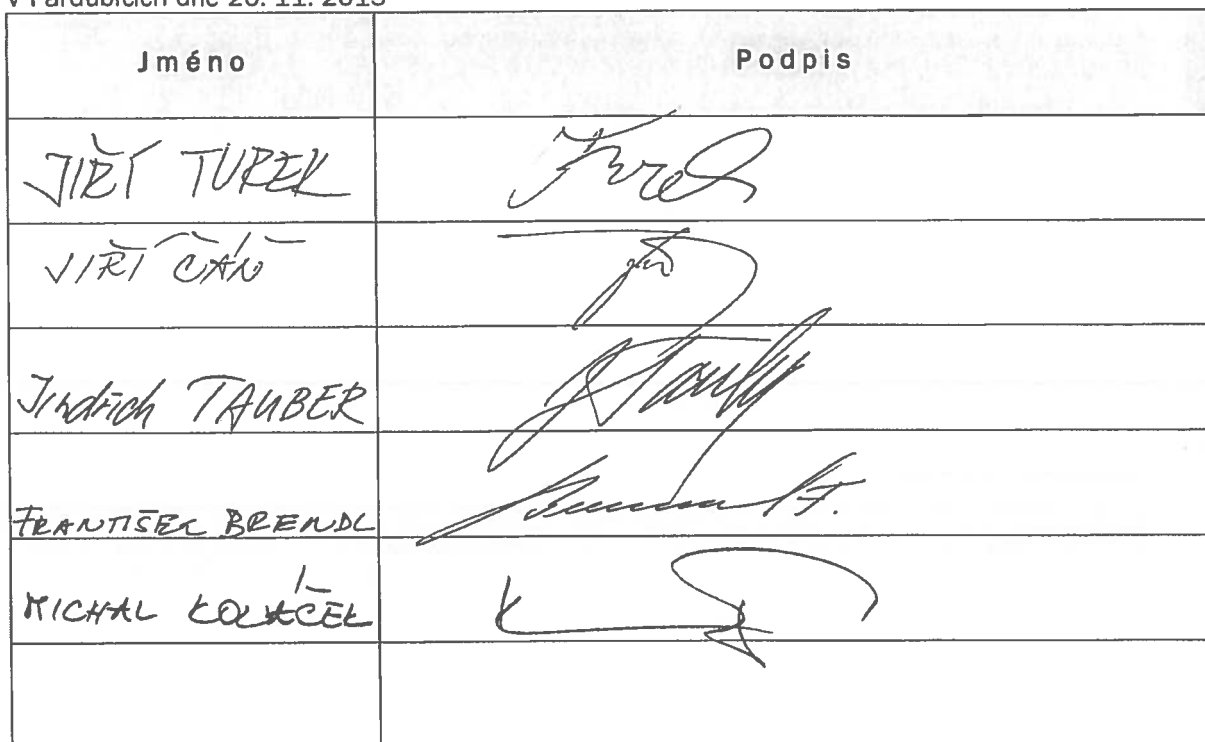 V Pardubicích dne 20. 11. 2013
Jméno Podpis
JIŘÍ TUREK Turek
JIŘÍ ČÁŇ
Jindřich TAUBER
FRANTIŠEK BRENDL
MICHAL KOLÁČEK